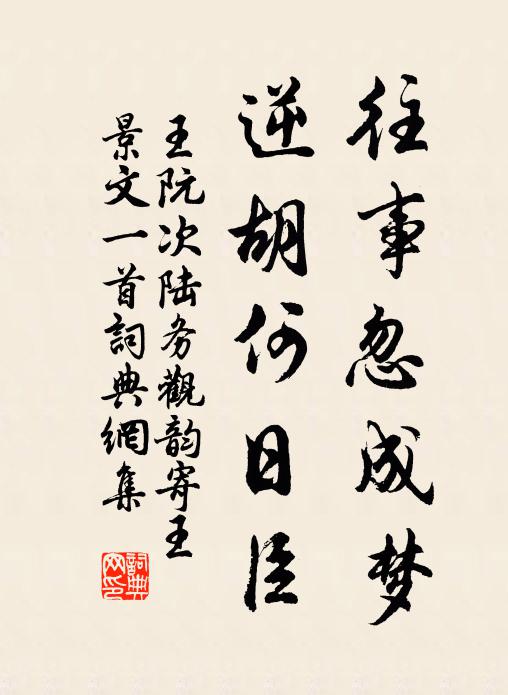 往事忽成梦
逆胡何日臣
王阮次陆务觀韵寄王
景文一首詞典網集
詞典网印